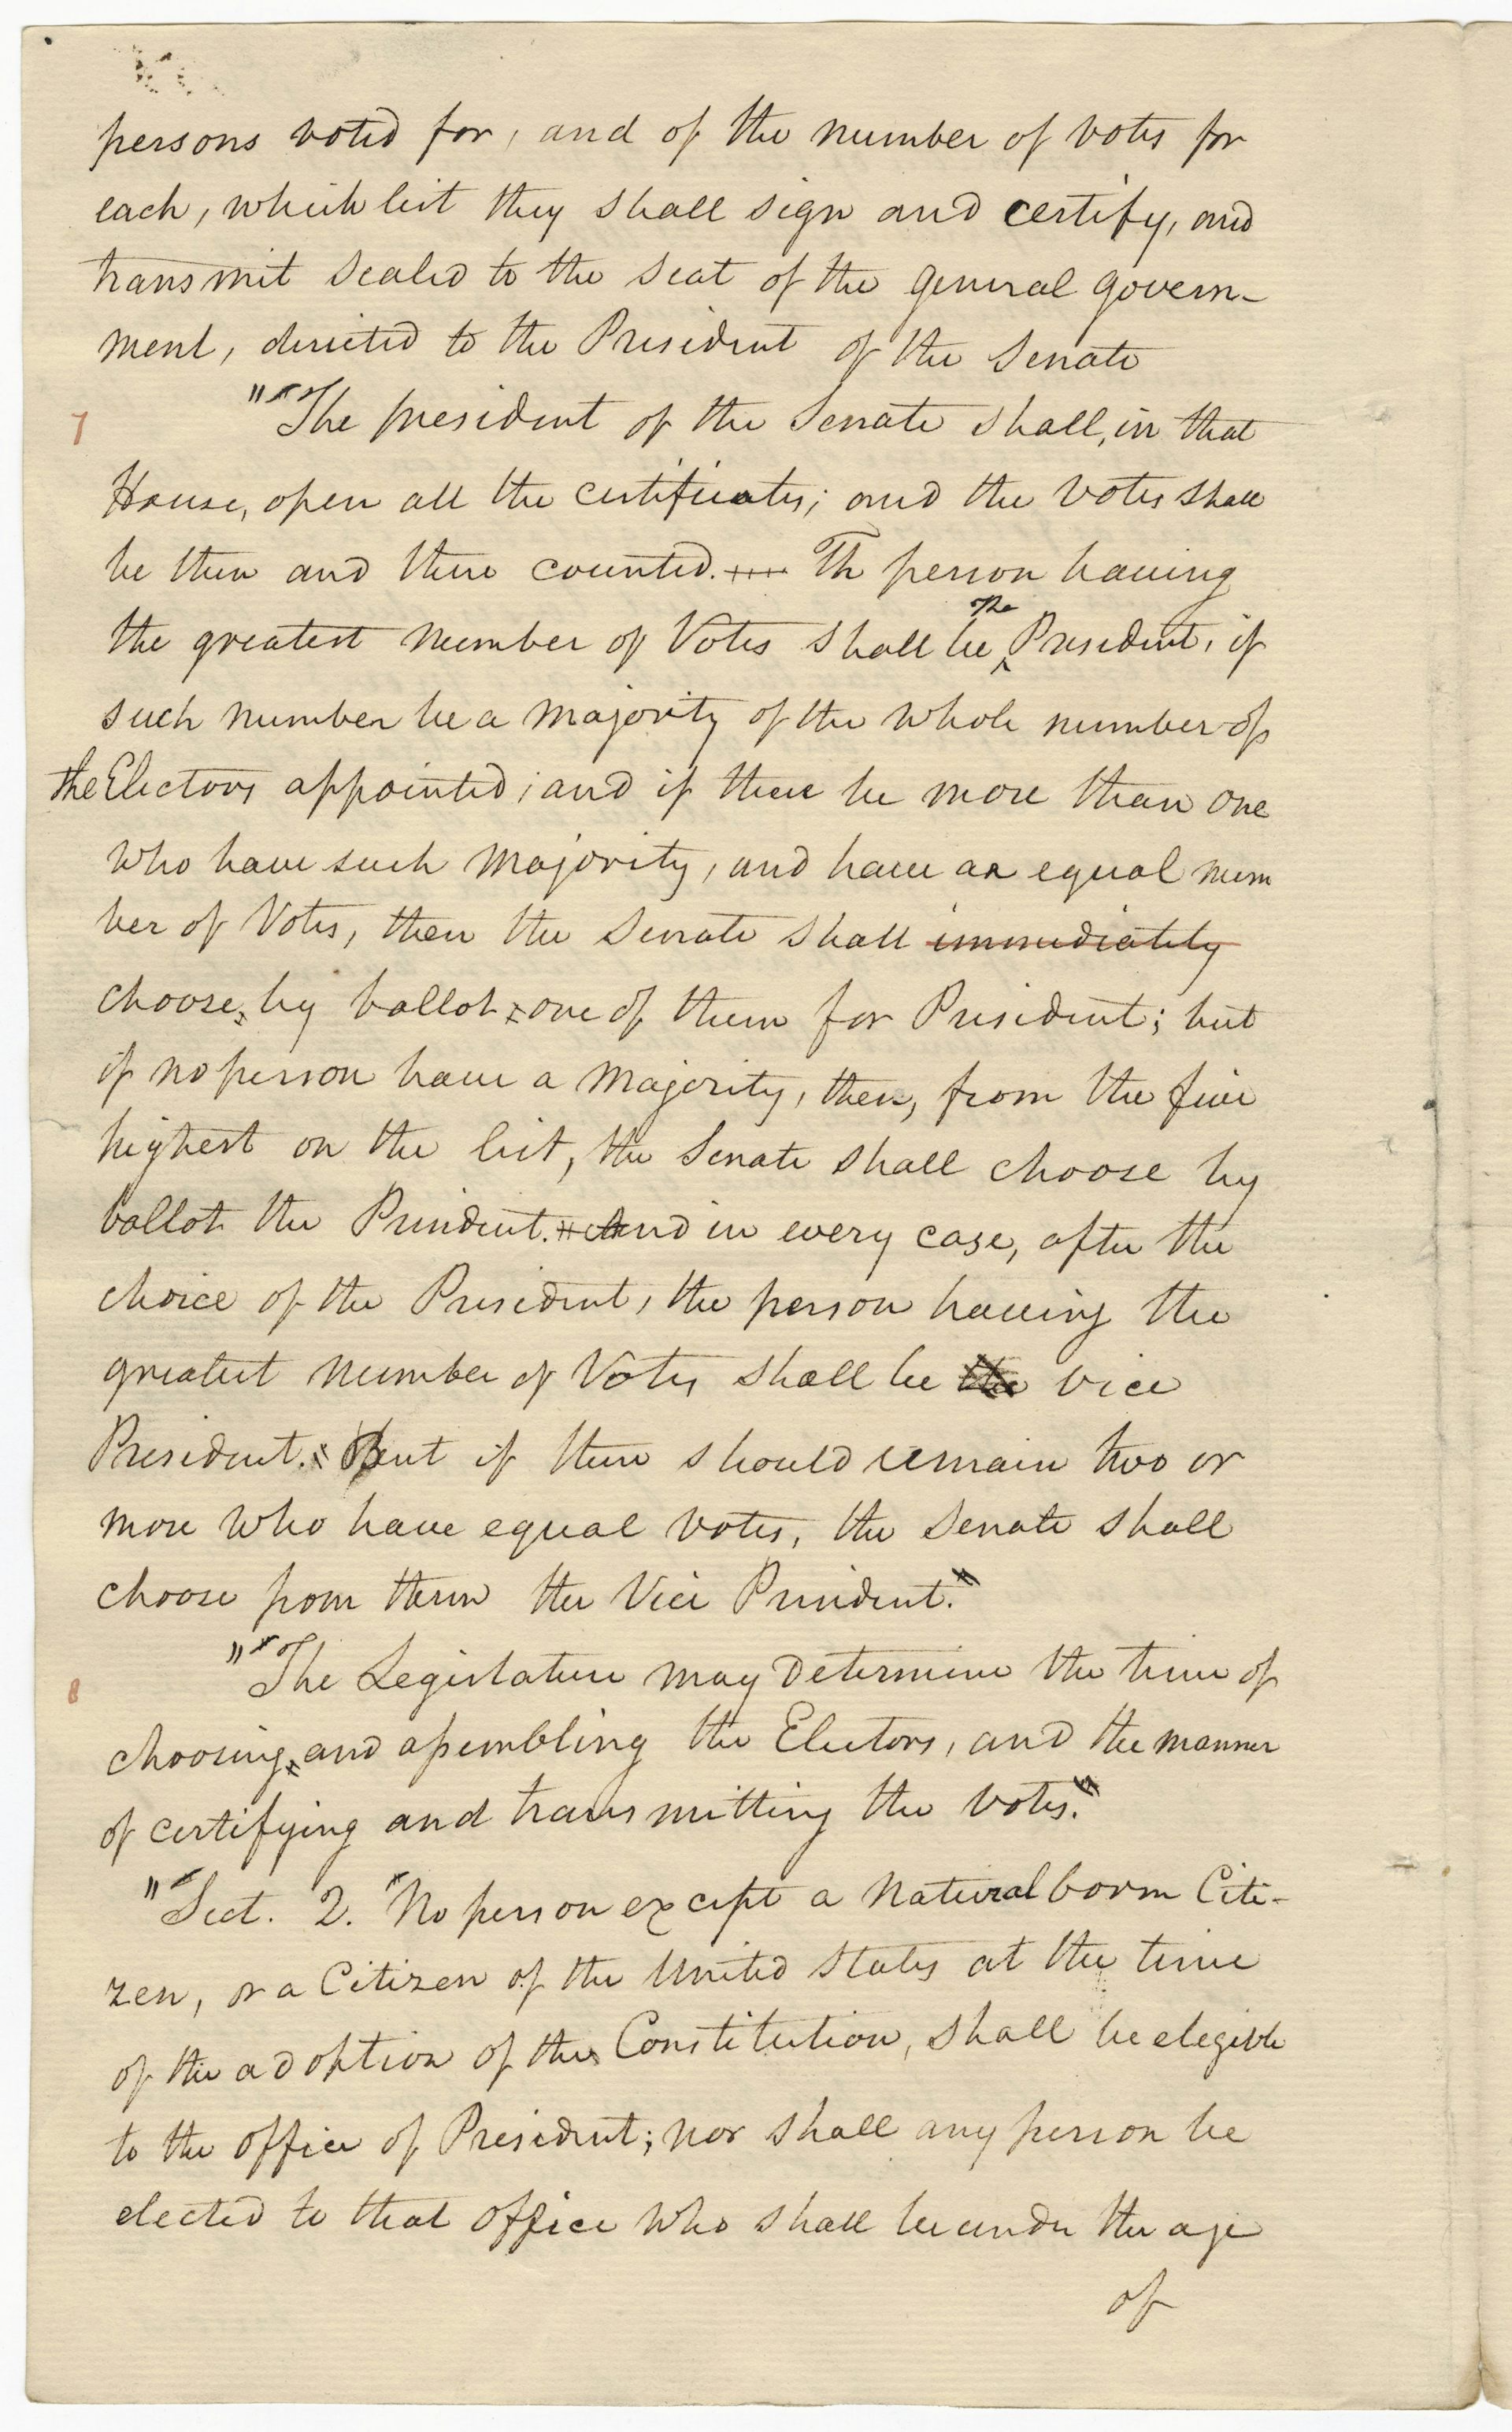 persons voted for, and of the number of votes for
each, which list they shall sign and certify, and
transmit sealed to the seat of the general govern-
ment, directed to the President of the Senate
7 "“The president of the Senate shall, in that
House, open all the certificates; and the votes shall
be then and there counted. Th person having
the greatest number of Votes shall be the President, if
such number be a majority of the whole number of
the Electors appointed; and if there be more than one
who have such majority, and have an equal num
ber of Votes, then the Senate shall immediately
choose by ballot one of them for President; but
if no person have a majority, then, from the five
highest on the list, the Senate shall choose by
ballot the President. And in every case, after the
choice of the President, the person having the
greatest number of Votes shall be the vice
President. But if there should remain two or
more who have equal votes, the Senate shall
choose from them the Vice President."
8 "“The Legislature may determine the time of
choosing and assembling the Electors, and the manner
of certifying and transmitting the votes."
"Sect. 2. "No person except a natural born Citi-
zen, or a Citizen of the United States at the time
of the adoption of this Constitution, shall be elegible
to the office of President; nor shall any person be
elected to that office who shall be under the age
of